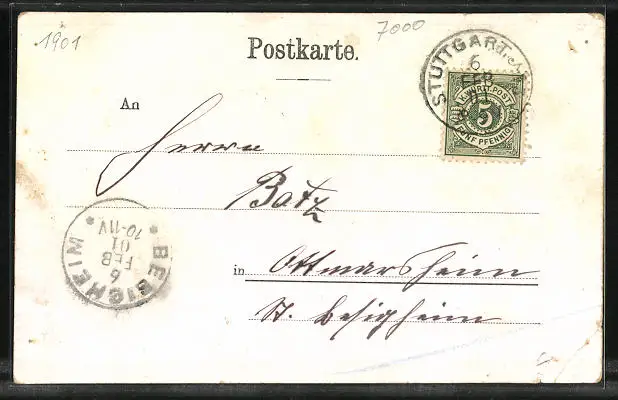 1901
7000
Postkarte.
STUTTGART
6
FEB
01
K. WÜRTT. POST
5
FÜNF PFENNIG
An
Herrn
Batz
in Ottmarsheim
St. Besigheim
BESIGHEIM
6
FEB
01
10-11V